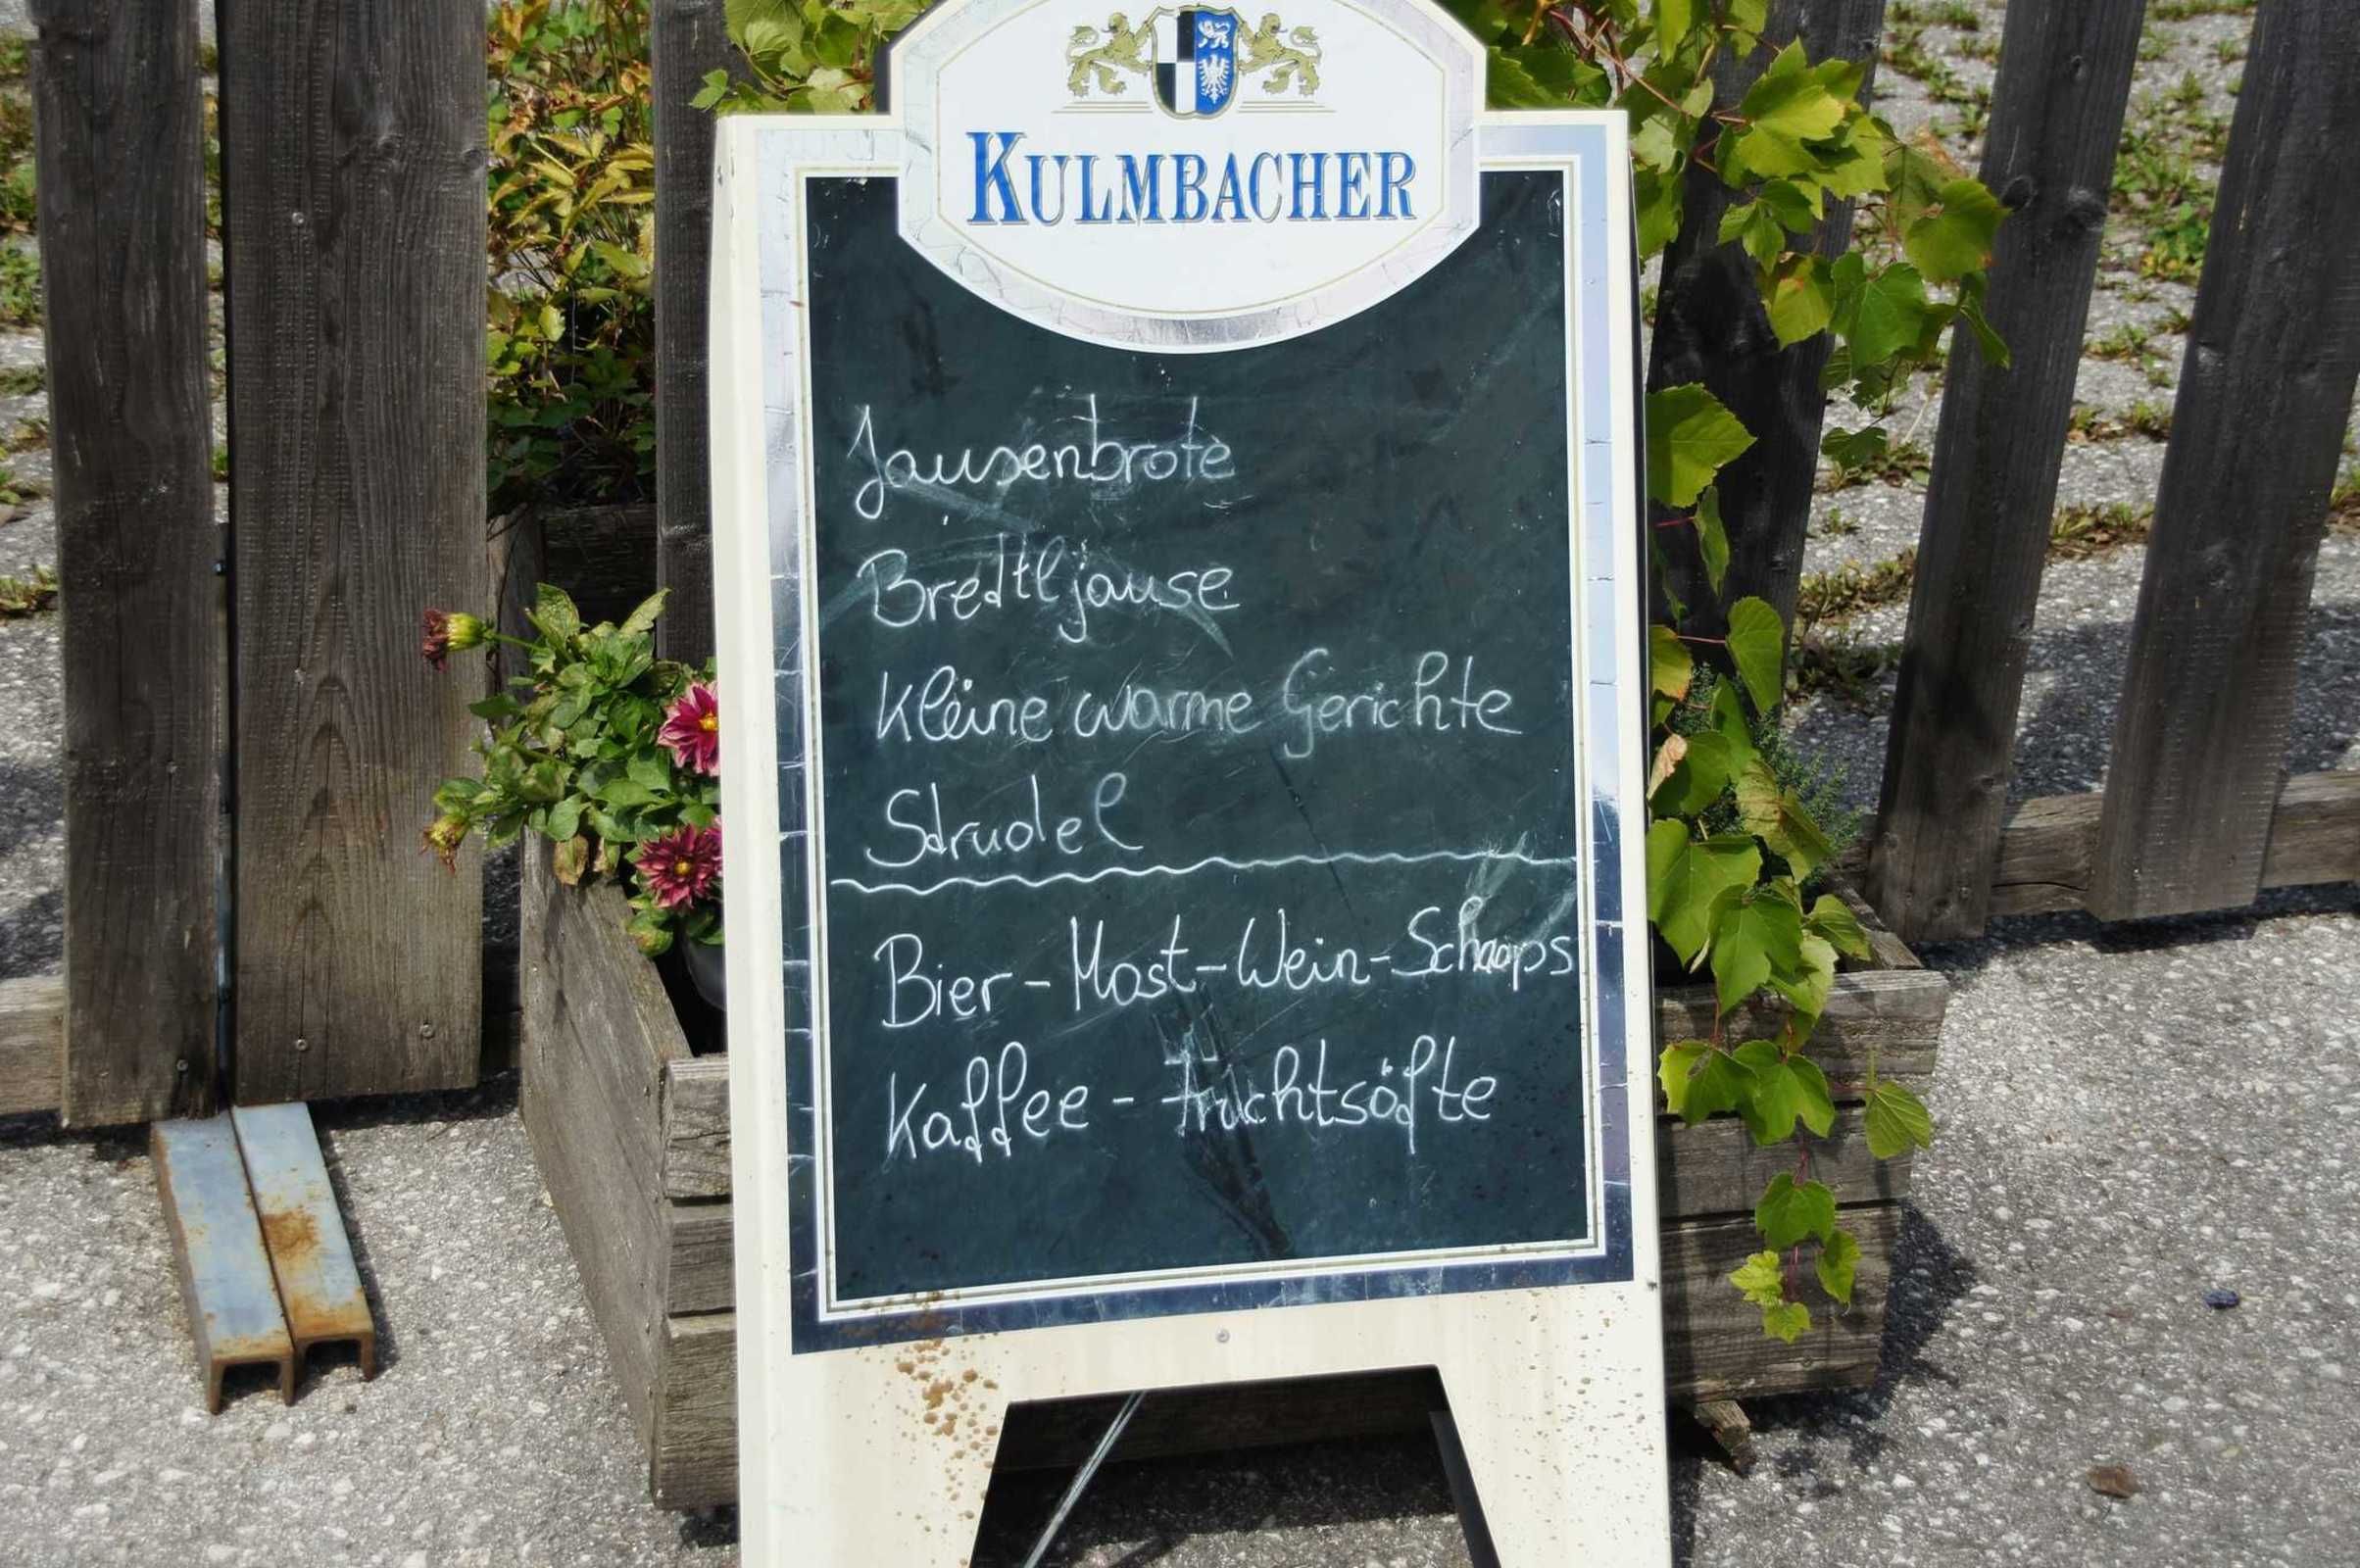 KULMBACHER
Jausenbrote
Bredtljause
Kleine warme Gerichte
Strudel
Bier - Most - Wein - Schnaps
Kaffee - Fruchtsäfte